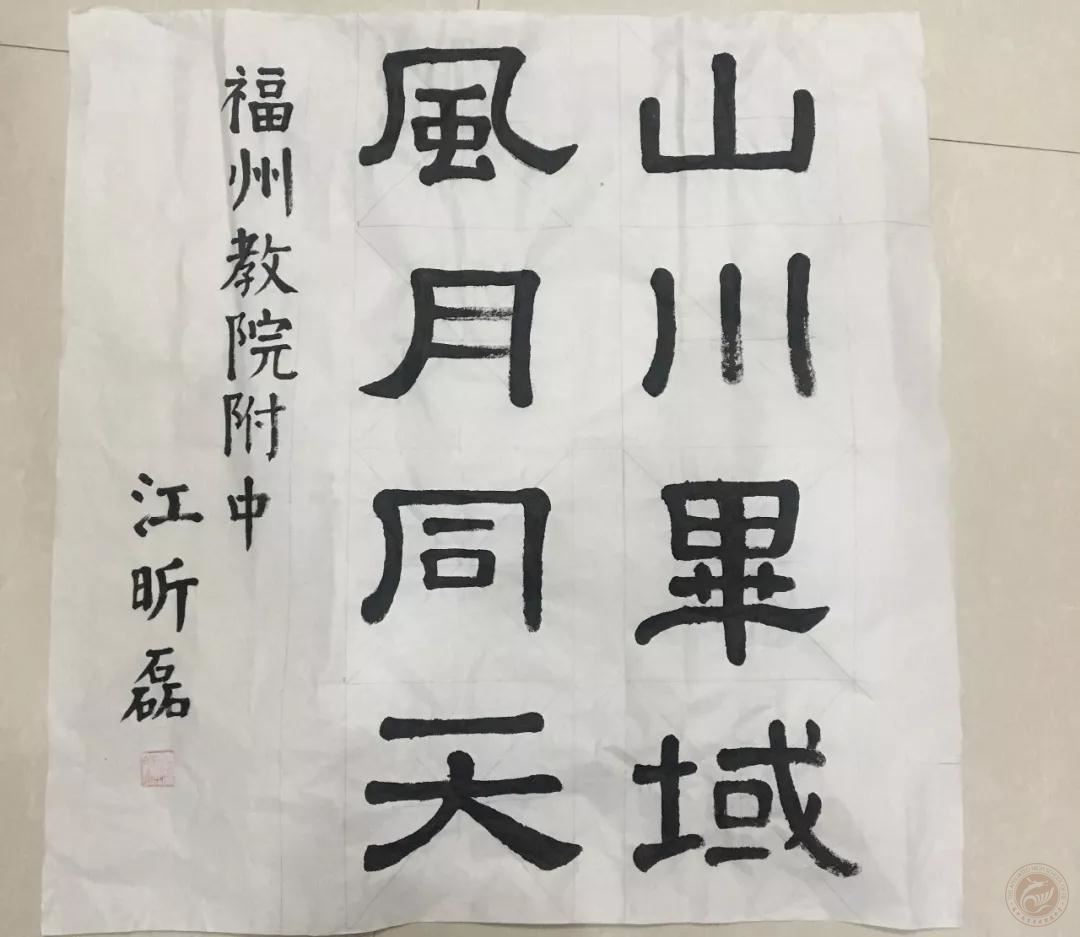 山川畢域
風月同天
福州教院附中
江昕磊